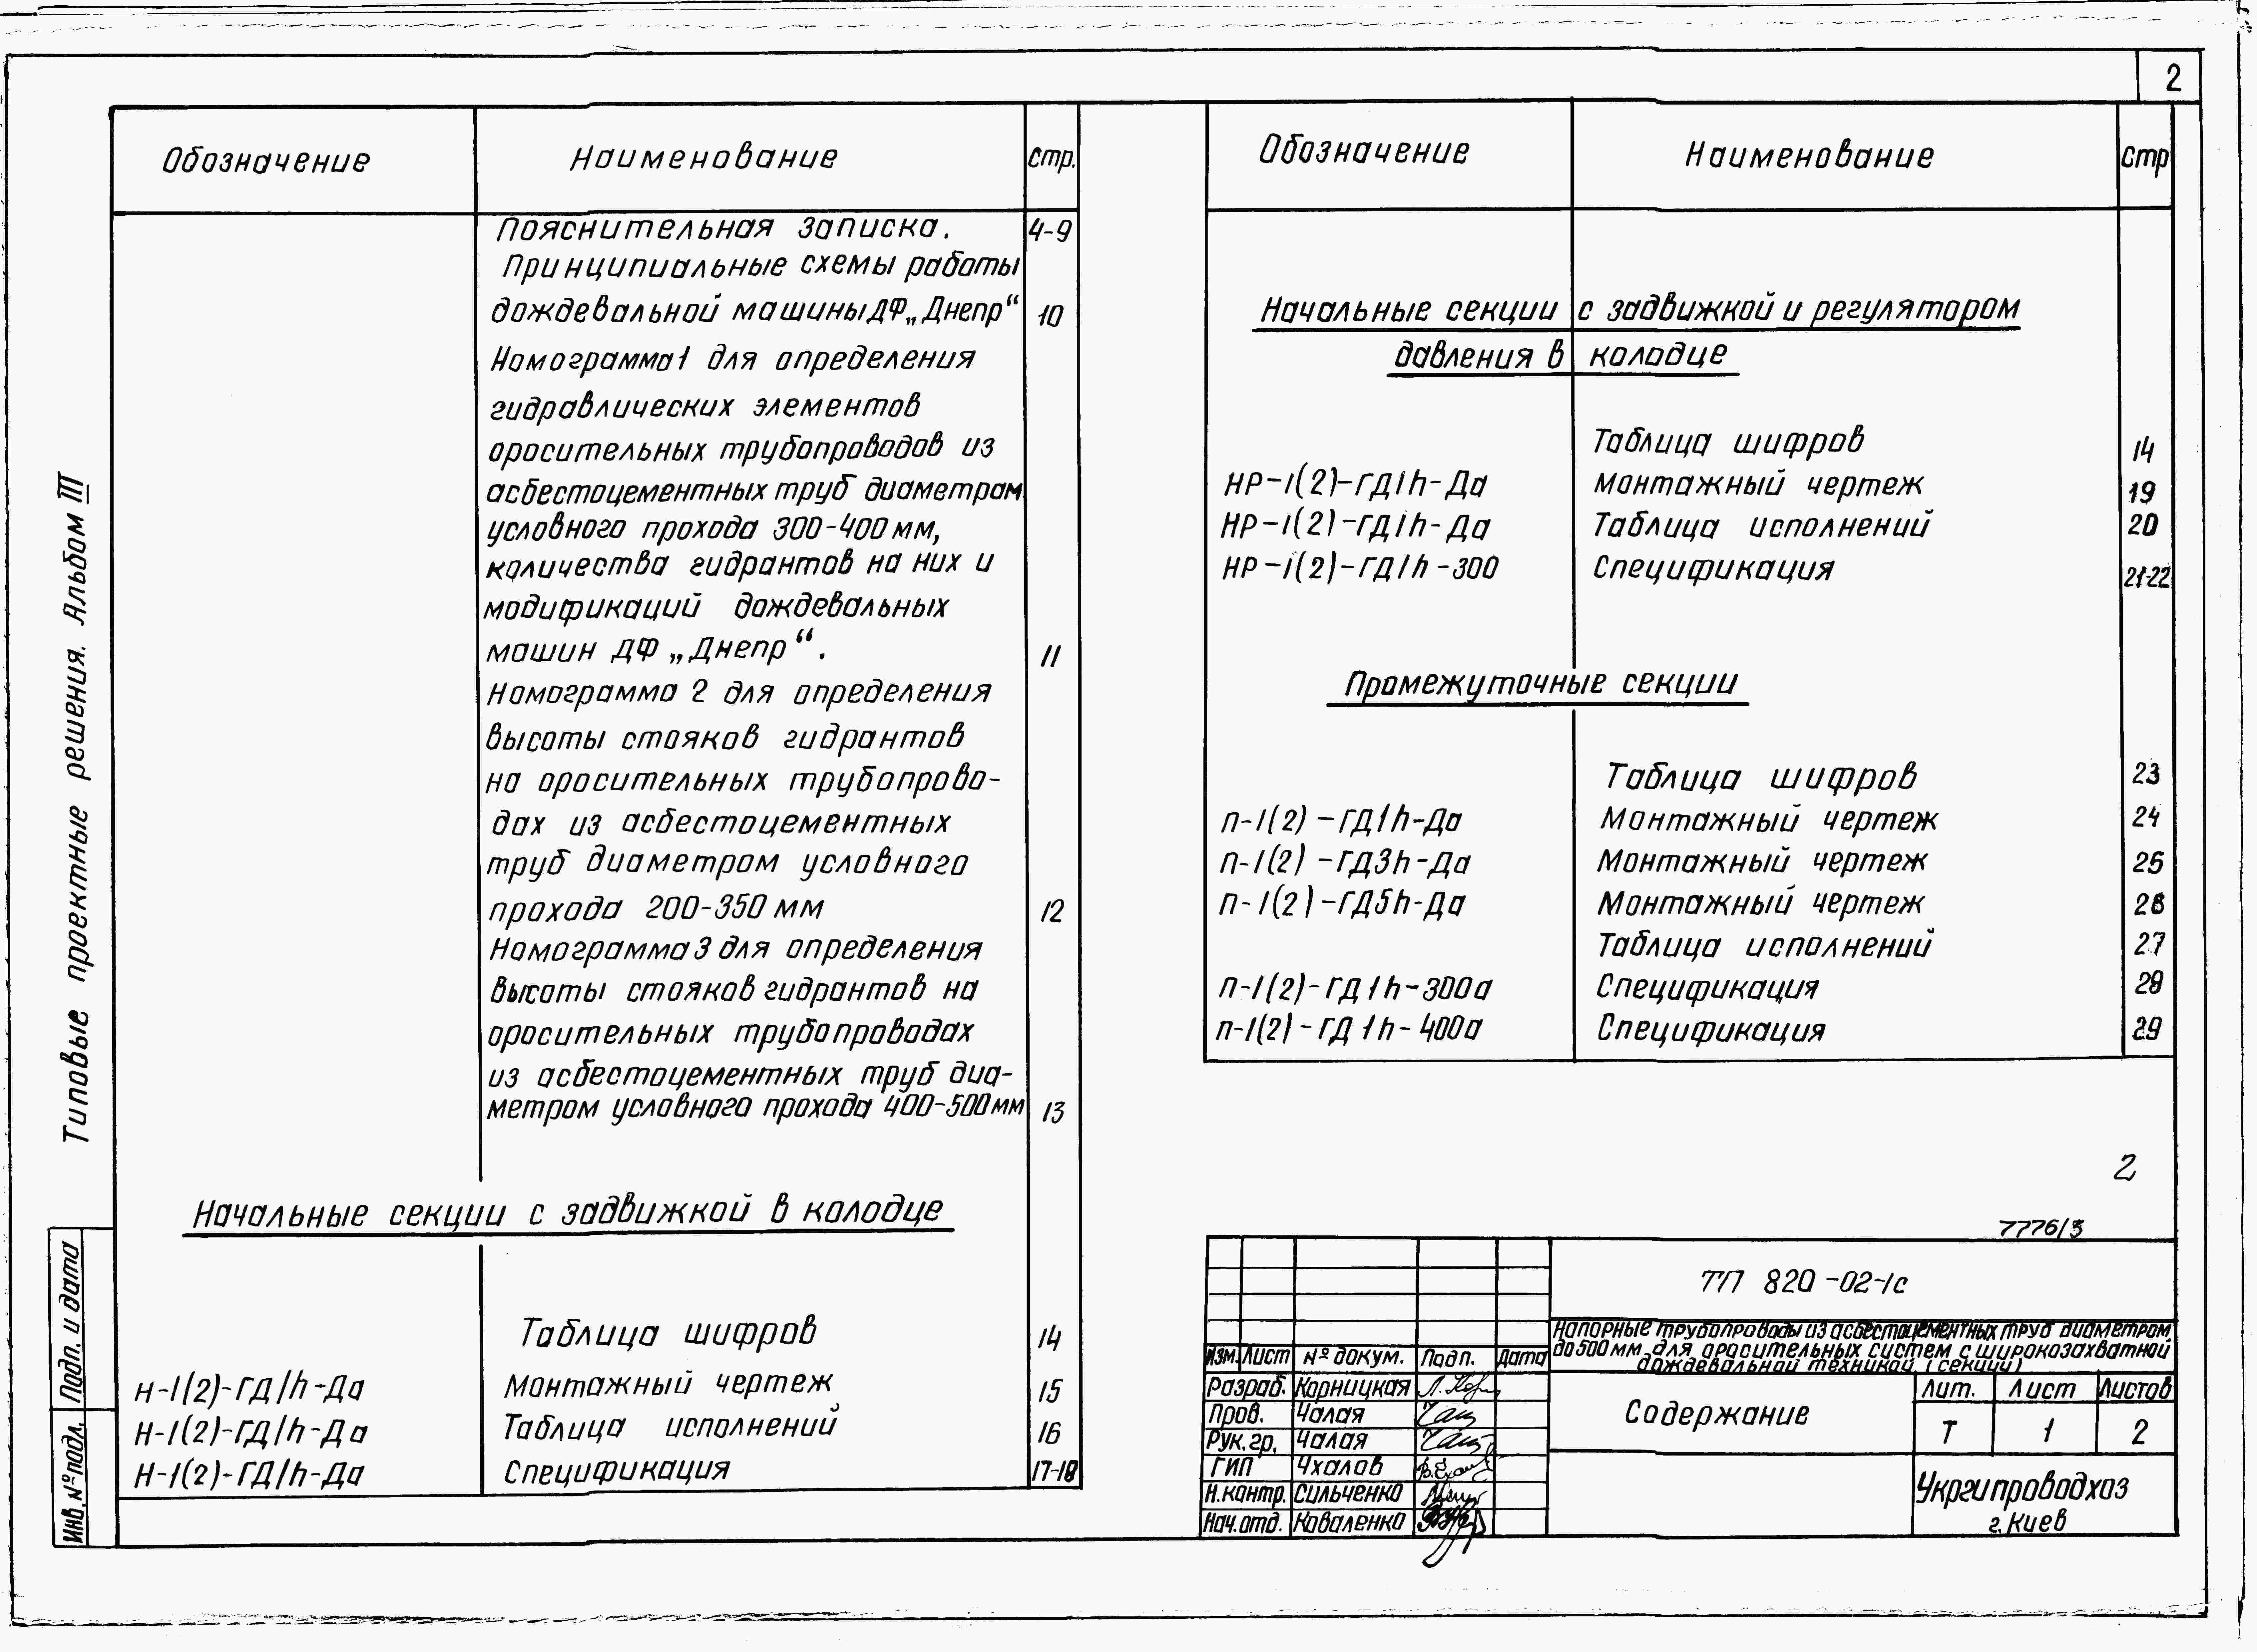 2
Типовые проектные решения. Альбом III
Подп. и дата
Инв. № подл.
Обозначение Наименование Стр.
Пояснительная записка. 4-9
Принципиальные схемы работы
дождевальной машины ДФ „Днепр“ 10
Номограмма 1 для определения
гидравлических элементов
оросительных трубопроводов из
асбестоцементных труб диаметрам
условного прохода 300-400 мм,
количества гидрантов на них и
модификаций дождевальных
машин ДФ „Днепр“. 11
Номограмма 2 для определения
высоты стояков гидрантов
на оросительных трубопрово-
дах из асбестоцементных
труб диаметром условного
прохода 200-350 мм 12
Номограмма 3 для определения
высоты стояков гидрантов на
оросительных трубопроводах
из асбестоцементных труб диа-
метром условного прохода 400-500 мм 13
Начальные секции с задвижкой в колодце
Таблица шифров 14
Н-1(2)-ГД1h-Да Монтажный чертеж 15
Н-1(2)-ГД1h-Да Таблица исполнений 16
Н-1(2)-ГД1h-Да Спецификация 17-18
Обозначение Наименование Стр
Начальные секции с задвижкой и регулятором
давления в колодце
Таблица шифров 14
НР-1(2)-ГД1h-Да Монтажный чертеж 19
НР-1(2)-ГД1h-Да Таблица исполнений 20
НР-1(2)-ГД1h-300 Спецификация 21-22
Промежуточные секции
Таблица шифров 23
П-1(2)-ГД1h-Да Монтажный чертеж 24
П-1(2)-ГД3h-Да Монтажный чертеж 25
П-1(2)-ГД5h-Да Монтажный чертеж 26
Таблица исполнений 27
П-1(2)-ГД1h-300а Спецификация 28
П-1(2)-ГД1h-400а Спецификация 29
2
7776/3
ТП 820-02-1с
Напорные трубопроводы из асбестоцементных труб диаметром
до 500 мм для оросительных систем с широкозахватной
дождевальной техникой (секции)
Изм. Лист № докум. Подп. Дата
Разраб. Корницкая
Пров. Чалая
Рук. гр. Чалая
ГИП Чхалов
Н.контр. Сильченко
Нач. отд. Коваленко
Содержание
Лит. Лист Листов
Т 1 2
Укргипроводхоз
г. Киев